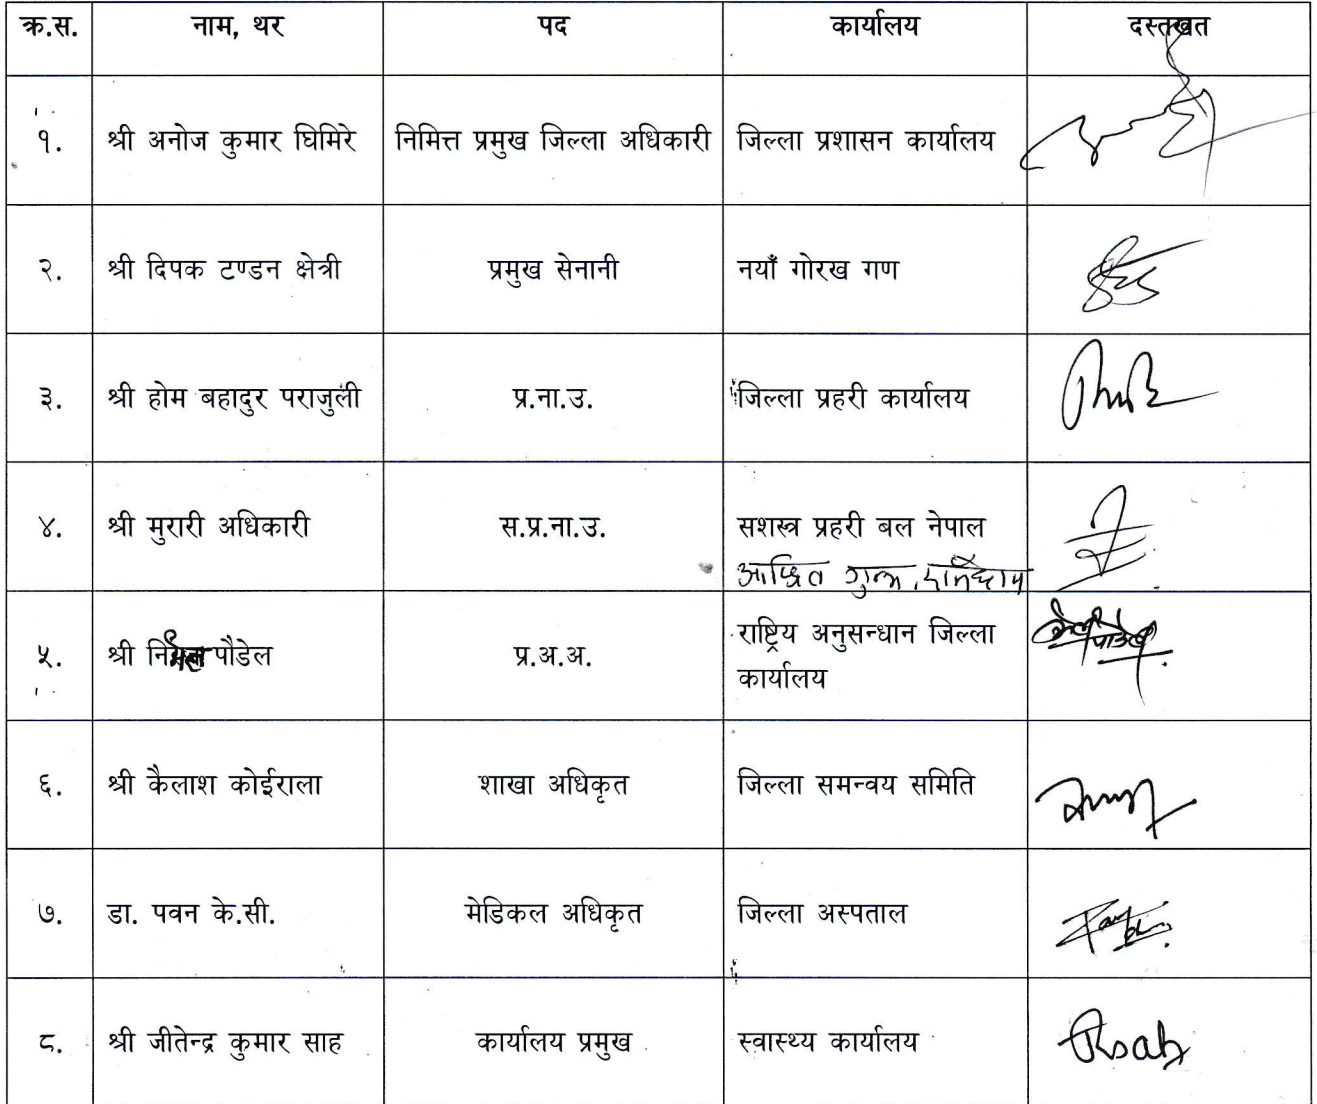 क्र.स. नाम, थर पद कार्यालय दस्तखत
१. श्री अनोज कुमार घिमिरे निमित्त प्रमुख जिल्ला अधिकारी जिल्ला प्रशासन कार्यालय
२. श्री दिपक टण्डन क्षेत्री प्रमुख सेनानी नयाँ गोरख गण
३. श्री होम बहादुर पराजुली प्र.ना.उ. जिल्ला प्रहरी कार्यालय
४. श्री मुरारी अधिकारी स.प्र.ना.उ. सशस्त्र प्रहरी बल नेपाल
आश्रित गुल्म,
५. श्री पौडेल प्र.अ.अ. राष्ट्रिय अनुसन्धान जिल्ला
कार्यालय
६. श्री कैलाश कोईराला शाखा अधिकृत जिल्ला समन्वय समिति
७. डा. पवन के.सी. मेडिकल अधिकृत जिल्ला अस्पताल
८. श्री जीतेन्द्र कुमार साह कार्यालय प्रमुख स्वास्थ्य कार्यालय